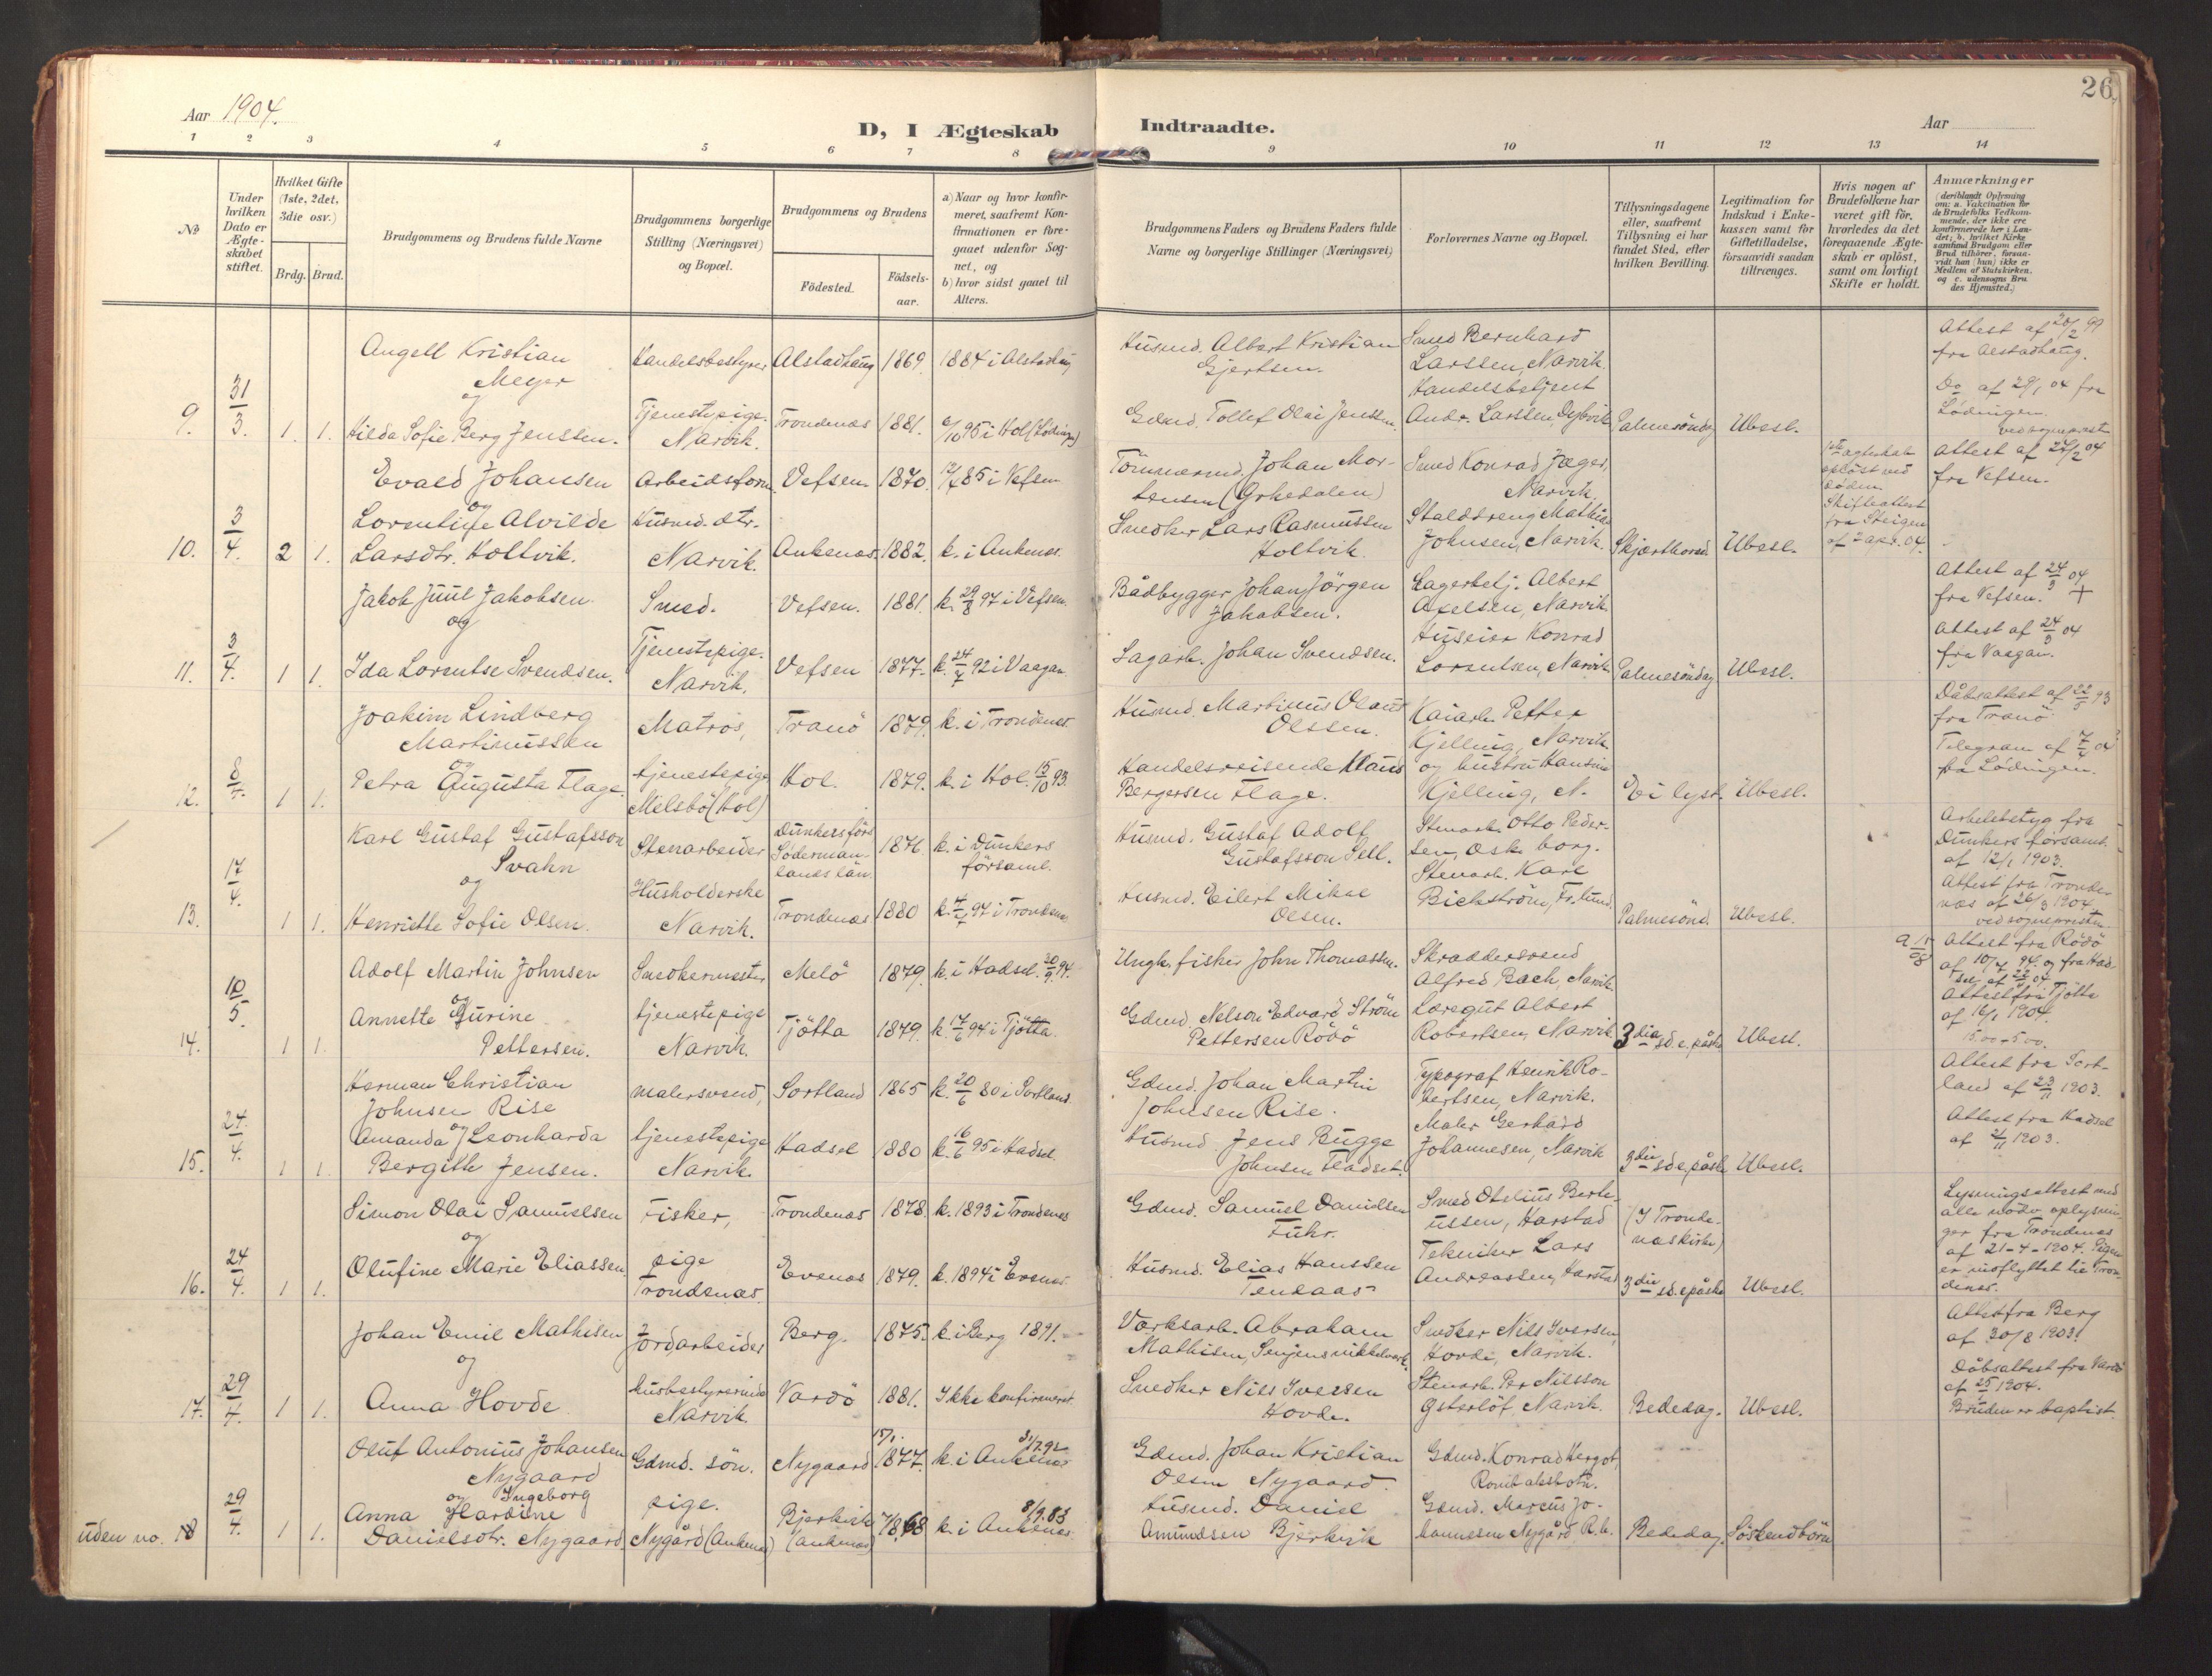 Aar 1904.
D, I Ægteskab Indtraadte.
Aar
26
1 2 3 4 5 6 7 8 9 10 11 12 13 14
No
Under hvilken Dato er Ægteskabet stiftet.
Hvilket Gifte (1ste, 2det, 3die osv.)
Brdg. Brud.
Brudgommens og Brudens fulde Navne
Brudgommens borgerlige Stilling (Næringsvei) og Bopæl.
Brudgommens og Brudens
Födested.
Födsels-aar.
a) Naar og hvor konfir-
meret, saafremt Kon-
firmationen er fore-
gaaet udenfor Sog-
net, og
b) hvor sidst gaaet til
Alters.
Brudgommens Faders og Brudens Faders fulde
Navne og borgerlige Stillinger (Næringsvei)
Forlovernes Navne og Bopæl.
Tillysningsdagene
eller, saafremt
Tillysning ei har
fundet Sted, efter
hvilken Bevilling.
Legitimation for
Indskud i Enke-
kassen samt for
Giftetilladelse,
forsaavidt saadan
tiltrænges.
Hvis nogen af
Brudefolkene har
været gift för,
hvorledes da det
foregaaende Ægte-
skab er oplöst,
samt om lovligt
Skifte er holdt.
Anmærkninger
(deriblandt Oplysning
om: a. Vakcination for
de Brudefolks Vedkom-
mende, der ikke ere
konfirmerede her i Lan-
det; b. hvilket Kirke
samfund Brudgom eller
Brud tilhörer, forsaa-
vidt han (hun) ikke er
Medlem af Statskirken,
og c. udensogns Bru
des Hjemsted.)
Angell Kristian Handelsbestyrer Alstadhaug 1869. 1884 i Alstadhaug Husmd. Albert Kristian Smed Bernhard Attest af 20/2 99
Meyer Gjertsen. Larssen, Narvik. fra Alstadhaug.
og Handelsbetjent Do af 29/1 04 fra
9. 31/3. 1. 1. Hilda Sofie Berg Jenssen. Tjenestepige. Narvik. Trondenæs 1881. 6/10 95 i Hol (Lödingen) Gdmd. Tollef Olai Jenssen. Andr. Larssen, Dybvik Palmesöndag Ubesl. Lödingen.
ved sogneprest
Evald Johansen Arbeidsform. Vefsen. 1870. 12/7 85 i Vefsen Tömmermd. Johan Mor- Smed Konrad Jæger, 1ste ægteskab attest af 24/2 04
og tensen Narvik. oplöst ved döden. fra Vefsen.
Lorentine Alvilde Husmd. dtr. Snedker Lars Rasmussen Staldreng Mathias Skifteattest fra Steigen
10. 3/4. 2 1. Larsdtr. Holtvik. Narvik. Ankenæs. 1882. k. i Ankenæs. Holtvik. Johnsen, Narvik. Skjærthorsd. Ubesl. af 2 apr. 04.
Jakob Juul Jakobsen Smed. Vefsen. 1881. k. 29/8 97 i Vefsen. Bådbygger Johan Jörgen Lagerbetj. Albert Attest af 24/3 04
og Jakobsen. Axelsen, Narvik. fra Vefsen. +
Tjenestepige. Huseier Konrad Attest af 24/3 04
11. 3/4. 1 1. Ida Lorentse Svendsen. Narvik. Vefsen 1877. k. 24/7 92 i Vaagan. Sagarb. Johan Svendsen. Lorentsen, Narvik. Palmesöndag Ubesl. fra Vaagan.
Joakim Lindberg Matros, Tranö 1879. k. i Trondenæs. Husmd. Martinus Olaus Kaiarb. Petter Dåbsattest af 22/5 93
Martinussen Olssen. Kjelling, Narvik. fra Tranö.
og Telegram af 7/4 04
12. 8/4. 1 1. Petra Augusta Flage. tjenestepige Hol. 1879. k. i Hol. 15/10 93. Handelsreisende Klaus og hustru Hansine fra Lödingen.
Milsbö (Hol) Bergersen Flage. Kjelling, N. Ei lyst. Ubesl.
Karl Gustaf Gustafsson Stenarbeider Dunkers förs Södermanlands län. 1876 k. i Dunkers församl. Husmd. Gustaf Adolf Stenarb. Otto Peder- Arbetsbetyg fra
Svahn Gustafsson Sell. sen, Osk. borg. Dunkers församl.
og Stenarb. Karl af 12/1 1903.
13. 17/4. 1 1. Henriette Sofie Olsen. Husholderske Narvik. Trondenæs 1880 k. i Trondenæs. Husmd. Eilert Mikal Bickström, Fr. lund. Attest fra Tronde-
Olsen. Palmesönd. Ubesl. næs af 26/3 1904.
ved sognepresten.
Adolf Martin Johnsen Snedkermester Melö 1879. k. i Hadsel. 30/9 94. Ungk. fisker John Thomassen. Skræddersvend Attest fra Rödö
og Alfred Bach, Narvik. af 10/7 94. og fra Had-
sel, af 22/3 04.
Annette Gurine tjenestepige Gdmd. Nelson Edvard Ström Læregut Albert Attest fra Tjötta
14. 10/5. 1 1. Pettersen. Narvik. Tjötta 1879. k. 17/6 94 i Tjötta. Pettersen Rödö Robertsen, Narvik 3die sd. e. påske Ubesl. af 16/1 1904.
15.00 + 5.00.
Herman Christian malersvend, Sortland 1865 k. 20/6 80 i Sortland. Gdmd. Johan Martin Typograf Henrik Ro- Attest fra Sort-
Johnsen Rise Johnsen Rise. bertsen, Narvik. land af 23/11 1903.
Amanda og Leonharda tjenestepige Husmd. Jens Bugge Maler Gerhard Attest fra Hadsel
15. 24/4. 1 1. Bergith Jensen. Narvik. Hadsel 1880 k. 16/6 95 i Hadsel. Johnsen Fladset. Johannesen, Narvik 3die sd. e. påske Ubesl. af 2/11 1903.
Simon Olai Samuelsen Fisker, Trondenæs 1878. k. 1893 i Trondenæs Gdmd. Samuel Danielsen Smed Otelius Berte- (I Tronde- Lysningsattest med
og Fuhr. ussen, Harstad næs kirke) alle nödv. oplysnin-
Olufine Marie Eliassen. pige Husmd. Elias Hanssen Tekniker Lars ger fra Trondenæs
16. 24/4. 1 1. Trondenæs. Evenæs 1879. k. 1894 i Evenæs. Andreassen, Harstad 3die sd. e. påske Ubesl. af 21-4-1904. Pigen
er indflyttet til Tron-
denæs.
Johan Emil Mathisen Jordarbeider Berg. 1875. k. i Berg 1891. Værksarb. Abraham Snedker Nils Iversen Attest fra Berg
og Mathisen, Senjens nikkelverk. Hovde, Narvik. af 30/8 1903.
17. 29/4. 1 1. Anna Hovde husbestyrerinde Narvik. Vardö 1881. Ikke konfirmeret. Snedker Nils Iversen Stenarb. Per Nilsson Dåbsattest fra Vardö
Hovde. Österlöf, Narvik. Bededag. Ubesl. af 25/1 1904.
Bruden er baptist.
Oluf Antonius Johansen Gdmd. sön. Nygaard 15/1. 1877. k. i Ankenæs 31/7 92 Gdmd. Johan Kristian Gdmd. Konrad Hergot,
Nygaard Olsen Nygaard. Rombaksbotn.
og Ingeborg
Anna Hardine pige. Bjerkvik Husmd. Daniel Gdmd. Marcus Jo-
uden no. 18 29/4. 1 1. Danielsdtr. Nygaard Nygård (Ankenæs) (Ankenæs) 1868 k. i Ankenæs. 8/9.83 Amundsen Bjerkvik hannesen Nygård R.b. Bededag. Söskendbörn